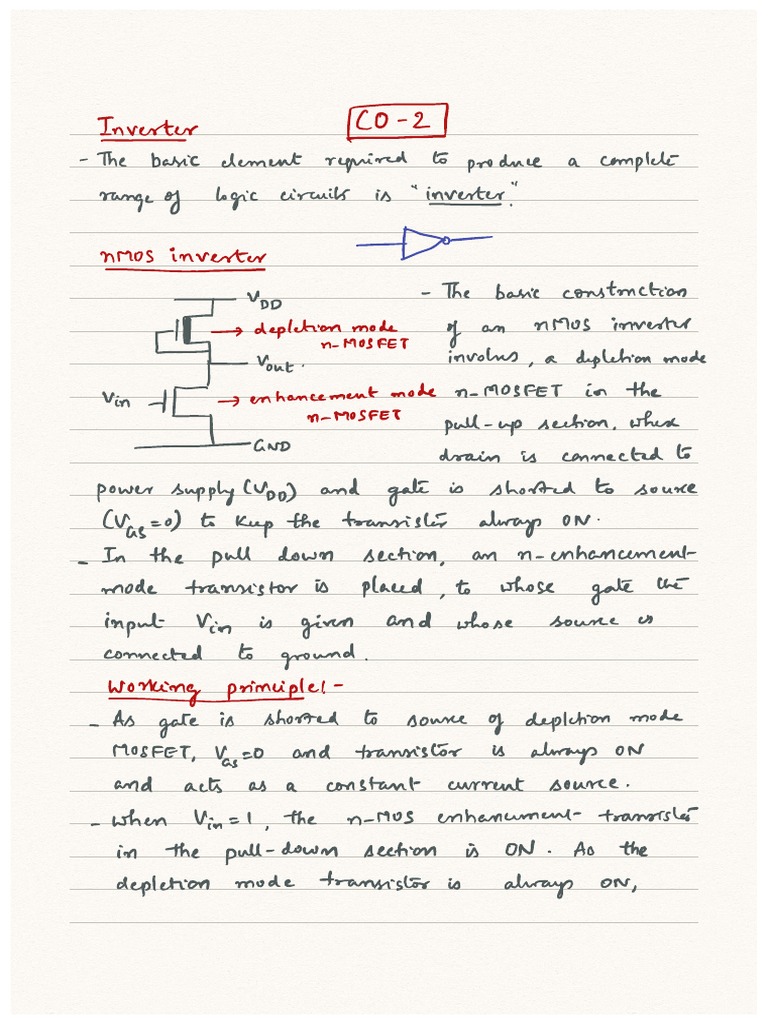 Inverter
CO-2
- The basic element required to produce a complete
range of logic circuits is "inverter."
nMOS inverter
VDD
→ depletion mode
n-MOSFET
Vout.
Vin
→ enhancement mode
n-MOSFET
GND
- The basic construction
of an nMOS inverter
involves, a depletion mode
n-MOSFET in the
pull-up section, whose
drain is connected to
power supply (VDD) and gate is shorted to source
(VGS=0) to keep the transistor always ON.
- In the pull down section, an n-enhancement-
mode transistor is placed, to whose gate the
input Vin is given and whose source is
connected to ground.
Working principle:-
- As gate is shorted to source of depletion mode
MOSFET, VGS=0 and transistor is always ON
and acts as a constant current source.
- When Vin=1, the n-MOS enhancement transistor
in the pull-down section is ON. As the
depletion mode transistor is always ON,